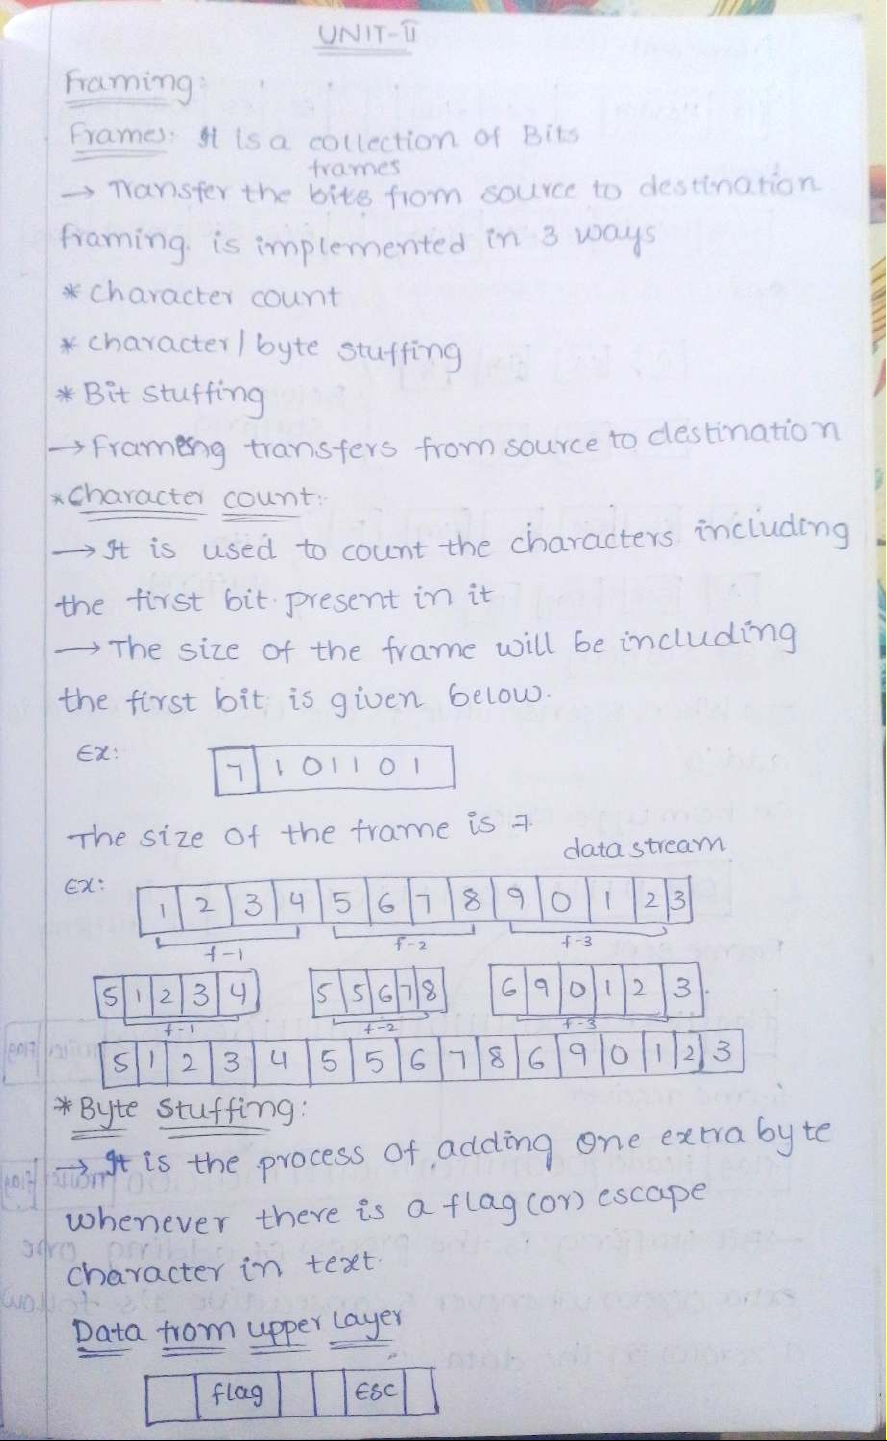 UNIT-II
Framing:
Frames: It is a collection of Bits
frames
→ Transfer the bits from source to destination
framing. is implemented in 3 ways
* character count
* character/byte stuffing
* Bit stuffing
→ Framing transfers from source to destination
* Character count:-
→ It is used to count the characters including
the first bit present in it
→ The size of the frame will be including
the first bit is given below.
Ex: 7 1 0 1 1 0 1
The size of the frame is 7
data stream
Ex: 1 2 3 4 5 6 7 8 9 0 1 2 3
f-1 f-2 f-3
5 1 2 3 4 5 5 6 7 8 6 9 0 1 2 3
f-1 f-2 f-3
5 1 2 3 4 5 5 6 7 8 6 9 0 1 2 3
* Byte Stuffing:
→ It is the process of adding one extra byte
whenever there is a flag (or) escape
character in text.
Data from upper layer
flag ESC